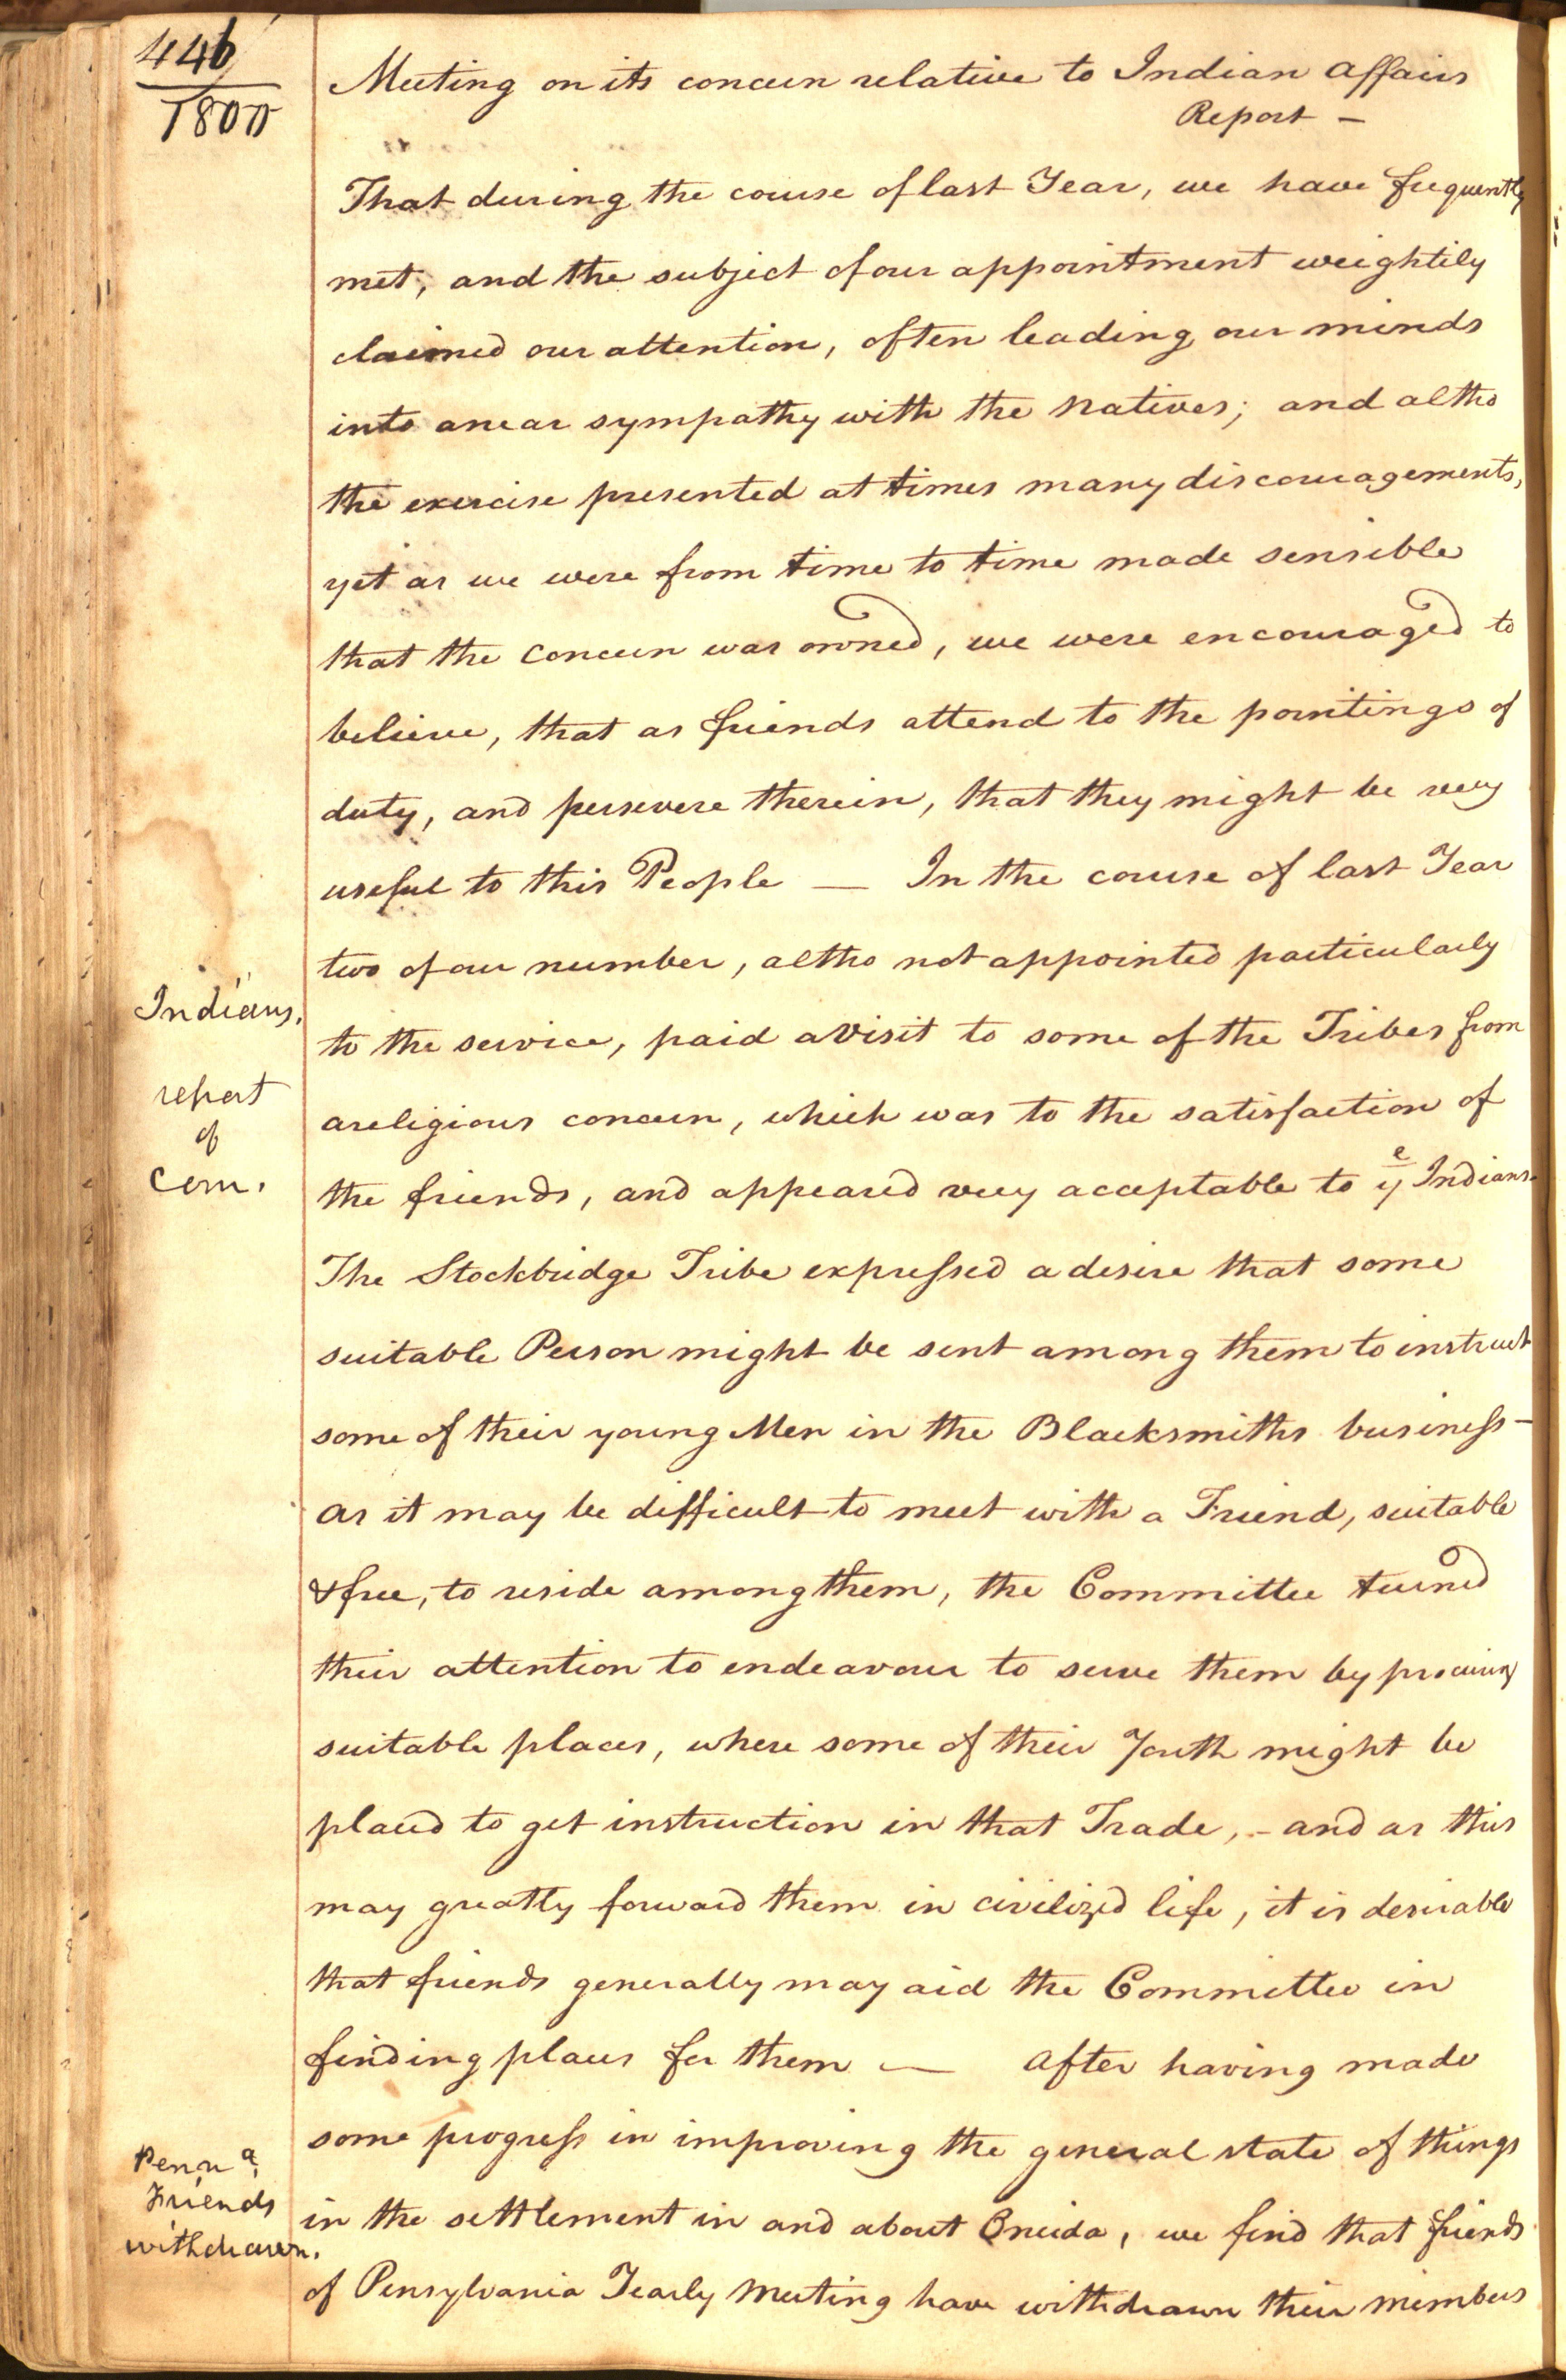 446
1800
Meeting on its concern relative to Indian affairs
Report —
That during the course of last Year, we have frequently
met, and the subject of our appointment weightily
claimed our attention, often leading our minds
into a near sympathy with the Natives; and altho
the exercise presented at times many discouragements,
yet as we were from time to time made sensible
that the concern was owned, we were encouraged to
believe, that as friends attend to the pointings of
duty, and persevere therein, that they might be very
useful to this People — In the course of last Year
two of our number, altho not appointed particularly
to the service, paid a visit to some of the Tribes from
a religious concern, which was to the satisfaction of
the friends, and appeared very acceptable to ye Indians.
The Stockbridge Tribe expressed a desire that some
suitable Person might be sent among them to instruct
some of their young Men in the Blacksmiths business —
as it may be difficult to meet with a Friend, suitable
& free, to reside among them, the Committee turned
their attention to endeavour to serve them by procuring
suitable places, where some of their Youth might be
placed to get instruction in that Trade, - and as this
may greatly forward them in civilized life, it is desirable
that friends generally may aid the Committee in
finding places for them — after having made
some progress in improving the general state of things
in the settlement in and about Oneida, we find that friends
of Pensylvania Yearly Meeting have withdrawn their members
Indians,
report
of
Com.
Penna.
Friends
withdrawn.